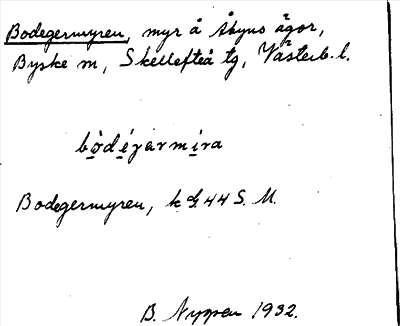 Bodegermyren, myr å Åbyns ägor,
Byske m, Skellefteå tg, Västerb. l.
bòdégarmira
Bodegermyren, k bl. 44 S. M.
B. Nyppen 1932.